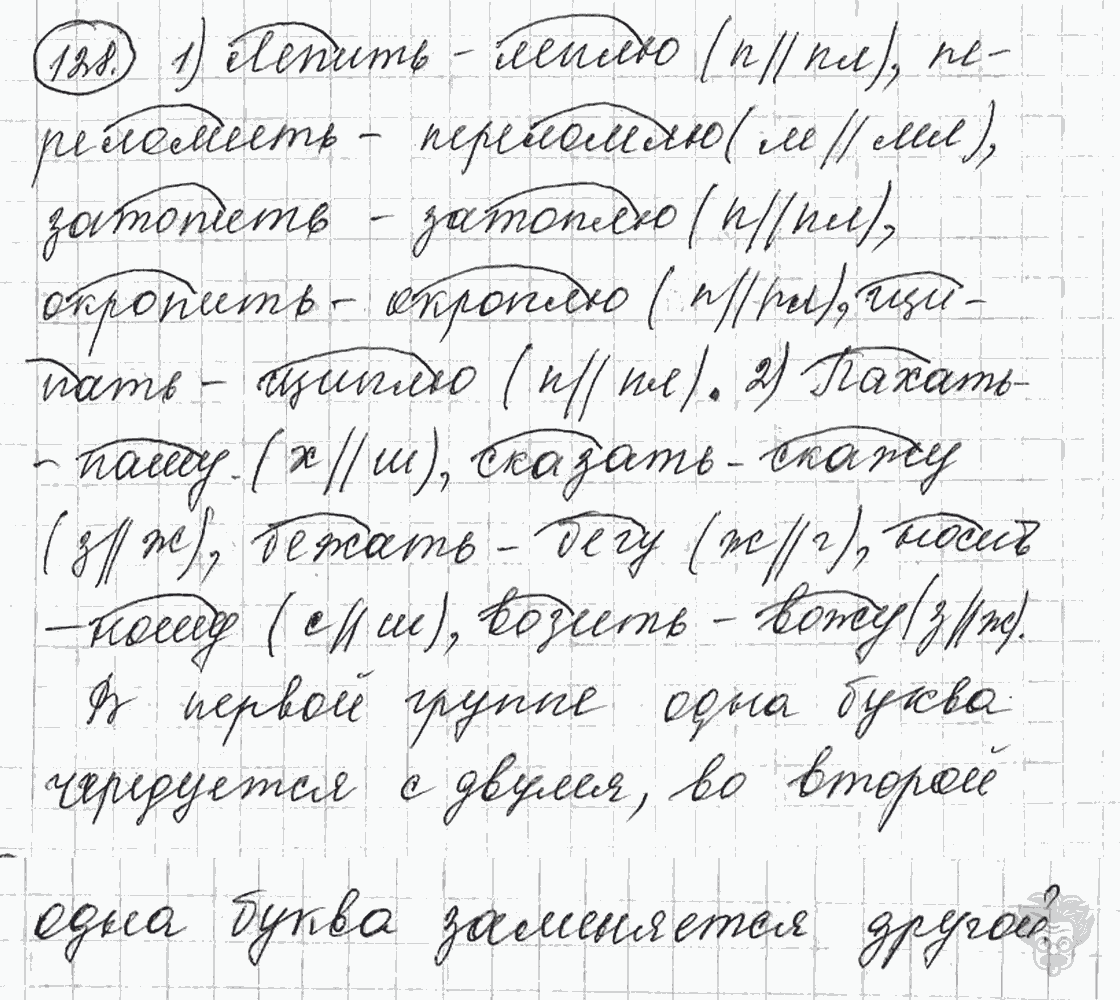 128. 1) Лепить – леплю (п//пл), пе-
реломить – переломлю (м//мл),
затопить – затоплю (п//пл),
окропить – окроплю (п//пл), щи-
пать – щиплю (п//пл). 2) Пахать-
- пашу (х//ш), сказать - скажу
(з//ж), бежать – бегу (ж//г), носить
– ношу (с//ш), возить – вожу (з//ж).
В первой группе одна буква
чередуется с двумя, во второй
одна буква заменяется другой.